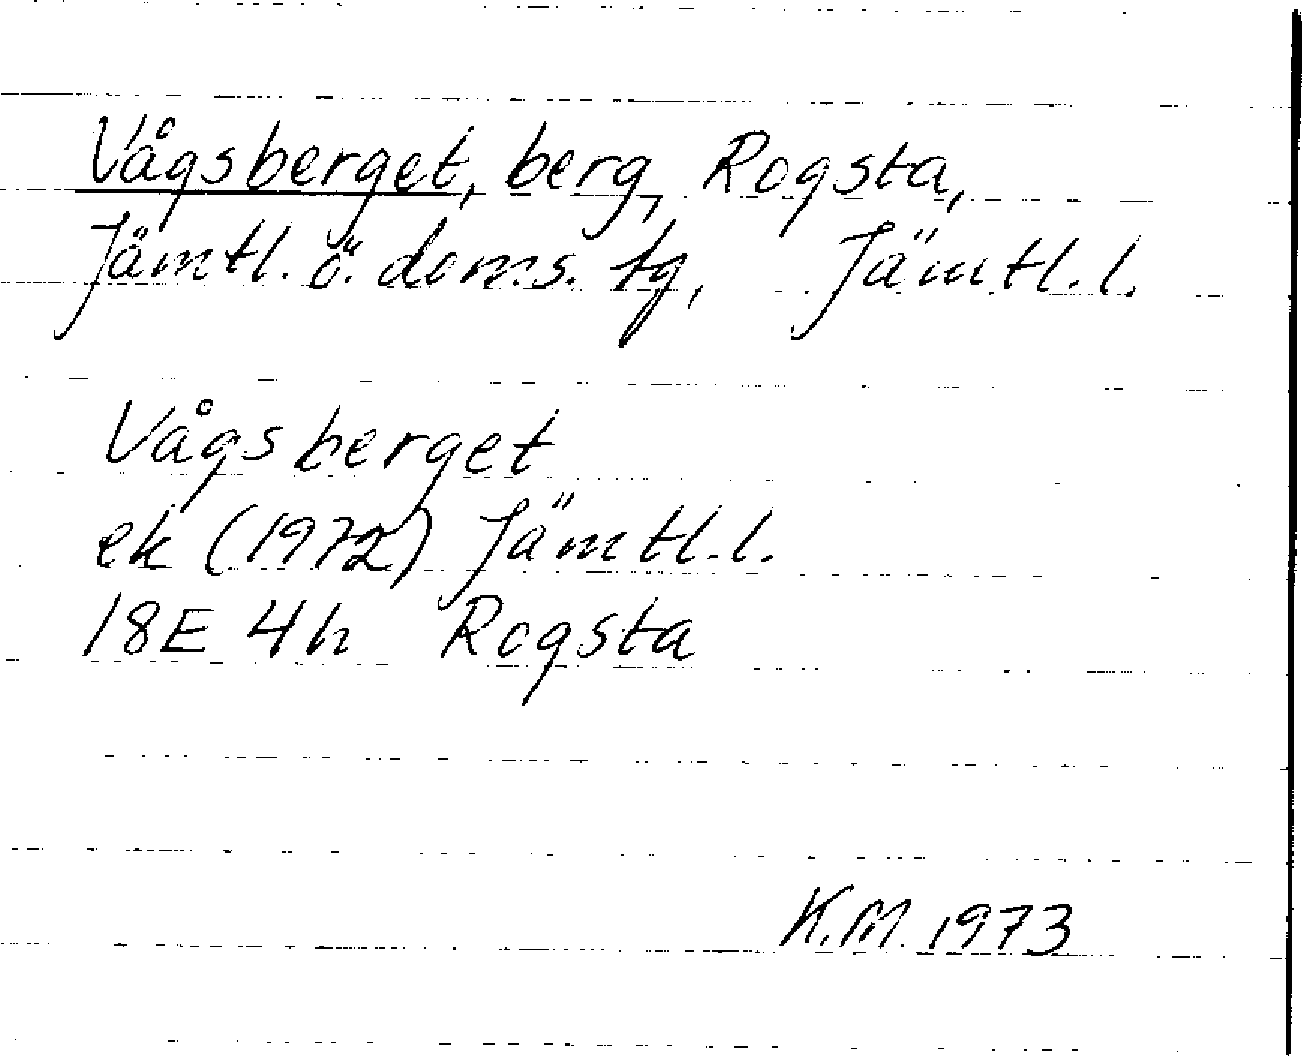 Vågsberget, berg, Rogsta,
Jämtl. ö. doms. tg, Jämtl. l.
Vågsberget
ek (1972) Jämtl. l.
18E 4h Rogsta
K.M. 1973